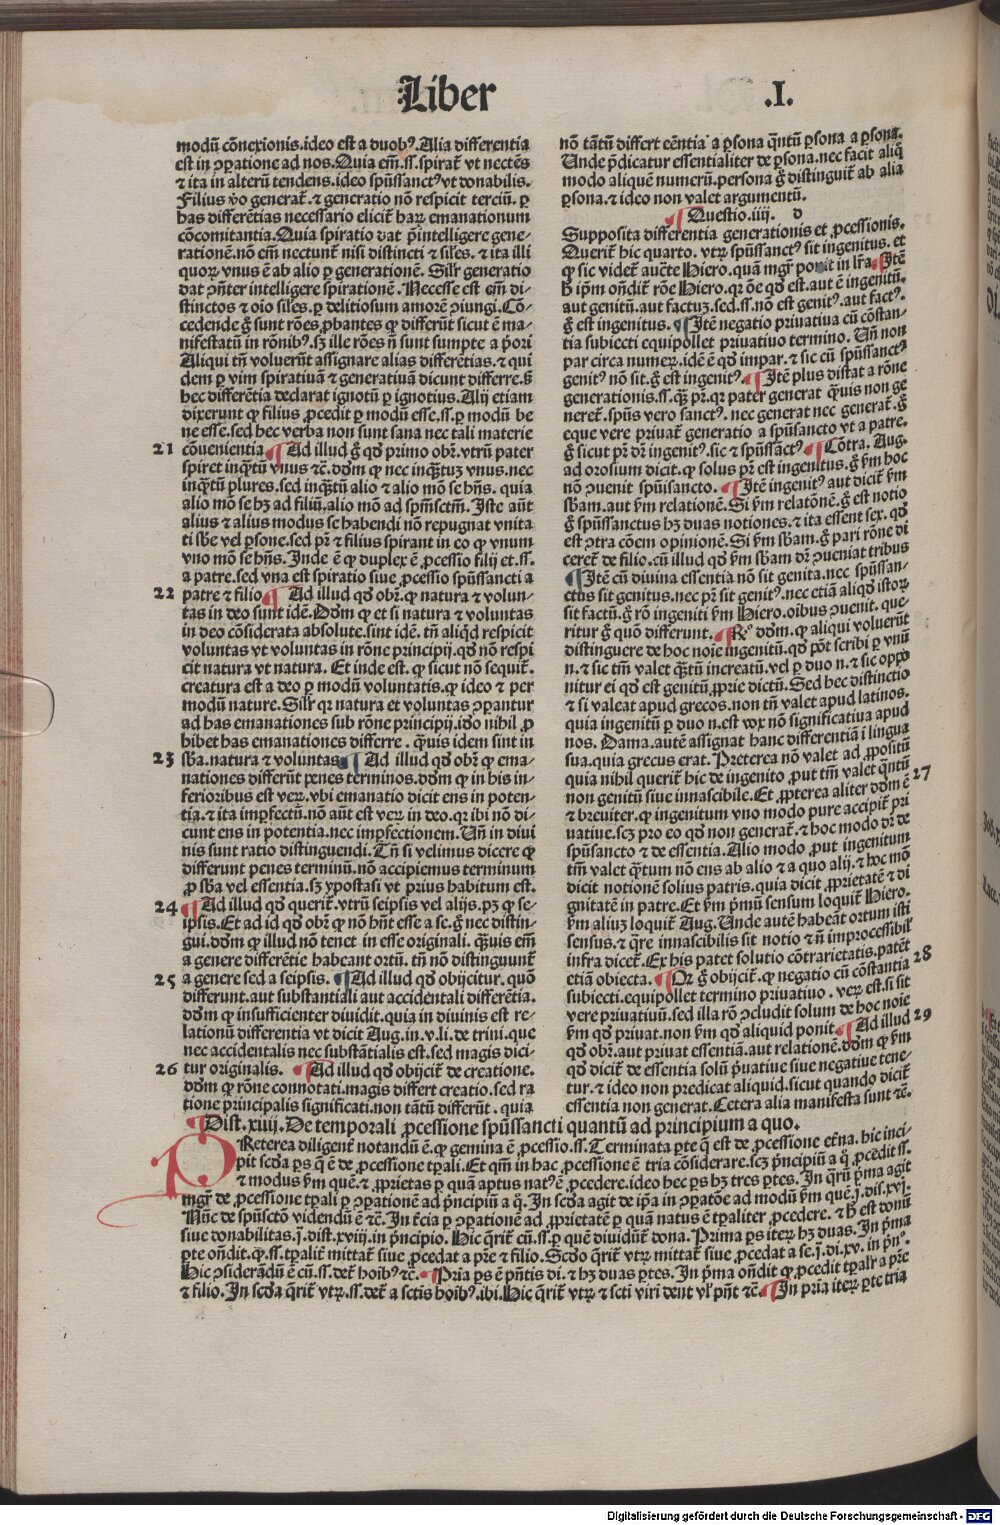 Liber .I.
modū cōnexionis.ideo est a duobꝰ.Alia differentia
est in ꝯparatione ad nos.Quia em̄.ss.spirat᷑ vt nectēs
⁊ ita in alterū tendens.ideo spūssanctꝰ vt donabilis.
Filius v̄o generat᷑.⁊ generatio nō respicit terciū.ꝑ
has differētias necessario elicit᷑ haꝝ emanationum
cōcomitantia.Quia spiratio dat p̄intelligere gene-
rationē.nō em̄ nectunt᷑ nisi distincti ⁊ siłes.⁊ ita illi
quoꝝ vnus ē ab alio ꝑ generationē. Silr̄ generatio
dat ꝯn̄ter intelligere spirationē. Necesse est em̄ di-
stinctos ⁊ oīo siłes.ꝑ delitiosum amorē ꝯiungi.Cō-
cedende ḡ sunt rōes ꝓbantes ꝙ differūt sicut ē ma-
nifestatū in rōnibꝰ.sꝫ ille rōes n̄ sunt sumpte a p̄ori
Aliqui tn̄ voluerūt assignare alias differētias.⁊ qui
dem ꝑ vim spiratiuā ⁊ generatiuā dicunt differre.s̄
hec differētia declarat ignotū ꝑ ignotius.Alij etiam
dixerunt ꝙ filius ꝓcedit ꝑ modū esse.ss.ꝑ modū be
ne esse.sed hec verba non sunt sana nec tali materie
21 cōuenientia ¶ Ad illud ḡ qd̄ primo obr̄.vtrū pater
spiret inq̄tū vnus ⁊c̄.dd̄m ꝙ nec inq̄ꝫtuꝫ vnus.nec
inq̄tū plures.sed inq̄ꝫtū alio ⁊ alio mō se hn̄s. quia
alio mō se hꝫ ad filiū.alio mō ad spm̄sctm̄. Iste aūt
alius ⁊ alius modus se habendi nō repugnat vnita
ti sb̄e vel ꝑsone.sed pr̄ ⁊ filius spirant in eo ꝙ vnum
vno mō se hn̄s. Inde ē ꝙ duplex ē ꝓcessio filij et.ss.
a patre.sed vna est spiratio siue ꝓcessio spūssancti a
22 patre ⁊ filio ¶ Ad illud qd̄ obr̄.ꝙ natura ⁊ volun-
tas in deo sunt idē.Dd̄m ꝙ et si natura ⁊ voluntas
in deo cōsiderata absolute.sint idē. tn̄ aliq̄d respicit
voluntas vt voluntas in rōne principij.qd̄ nō respi
cit natura vt natura. Et inde est.ꝙ sicut nō sequit᷑.
creatura est a deo ꝑ modū voluntatis.ꝙ ideo ⁊ per
modū nature. Silr̄ qꝛ natura et voluntas ꝯparantur
ad has emanationes sub rōne principij.iō nihil ꝓ
hibet has emanationes differre . q̄uis idem sint in
23 sb̄a.natura ⁊ voluntas ¶ Ad illud qd̄ obr̄ ꝙ ema-
nationes differūt penes terminos.dd̄m ꝙ in his in-
ferioribus est veꝝ.vbi emanatio dicit ens in poten-
tia.⁊ ita imꝑfectū.nō aūt est veꝝ in deo.qꝛ ibi nō di-
cunt ens in potentia.nec imꝑfectionem.Un̄ in diui
nis sunt ratio distinguendi.Tn̄ si velimus dicere ꝙ
differunt penes terminū.nō accipiemus terminum
ꝓ sb̄a vel essentia.sꝫ ypostasi vt prius habitum est.
24 ¶ Ad illud qd̄ querit᷑.vtrū seipsis vel alijs.pꝫ ꝙ se-
ipsis.Et ad id qd̄ obr̄ ꝙ nō hn̄t esse a se.ḡ nec distin-
gui.dd̄m ꝙ illud nō tenet in esse originali. q̄ꝫuis em̄
a genere differētie habeant ortū. tn̄ nō distinguunt᷑
25 a genere sed a seipsis. ¶ Ad illud qd̄ obijcitur. quō
differunt.aut substantiali aut accidentali differētia.
dd̄m ꝙ insufficienter diuidit.quia in diuinis est re-
lationū differentia vt dicit Aug.in.v.li.de trini.que
nec accidentalis nec substātialis est.sed magis dici-
26 tur originalis. ¶ Ad illud qd̄ obijcit᷑ de creatione.
dd̄m ꝙ rōne connotati.magis differt creatio.sed ra
tione principalis significati.non tātū differūt . quia
nō tātū differt eēntia a ꝑsona q̄ntū ꝑsona a ꝑsona.
Unde p̄dicatur essentialiter de ꝑsona.nec facit aliq̄
modo aliquē numerū.persona ḡ distinguit᷑ ab alia
ꝑsona.⁊ ideo non valet argumentū.
¶ Questio.iiij. d
Supposita differentia generationis et ꝓcessionis.
Querit᷑ hic quarto. vtꝝ spūssanctꝰ sit ingenitus. et
ꝙ sic videt᷑ aucte Hiero.quā mgr̄ ponit in lr̄a.¶ Itē
ꝑ ip̄m on̄dit᷑ rōe Hiero.qꝛ oē qd̄ est.aut ē ingenitū.
aut genitū.aut factuꝫ.sed.ss.nō est genitꝰ.aut factꝰ.
ḡ est ingenitus. ¶ Itē negatio priuatiua cū cōstan-
tia subiecti equipollet priuatiuo termino. Un̄ non
par circa numeꝝ.idē ē qd̄ impar.⁊ sic cū spūssanctꝰ
genitꝰ nō sit.ḡ est ingenitꝰ.¶ Itē plus distat a rōne
generationis.ss.q̄ꝫ pr̄.qꝛ pater generat q̄uis non ge
neret᷑.spūs vero sanctꝰ. nec generat nec generat᷑.ḡ
eque vere priuat᷑ generatio a spūsancto vt a patre.
ḡ sicut pr̄ dr̄ ingenitꝰ.sic ⁊ spūssāctꝰ ¶ Cōtra. Aug.
ad orosium dicit.ꝙ solus pr̄ est ingenitus.ḡ ẜm hoc
non ꝯuenit spūisancto. ¶ Itē ingenitꝰ aut dicit᷑ ẜm
sb̄am.aut ẜm relationē.Si ẜm relatōnē.ḡ est notio
ḡ spūssanctus hꝫ duas notiones.⁊ ita essent sex. qd̄
est ꝯtra cōem opinionē.Si ẜm sb̄am.ḡ pari rōne di
ceret᷑ de filio.cū illud qd̄ ẜm sb̄am dr̄ ꝯueniat tribus
¶ Itē cū diuina essentia nō sit genita.nec spūssan-
ctus sit genitus.nec pr̄ sit genitꝰ.nec etiā aliqd̄ istoꝝ
sit factū.ḡ rō ingeniti ẜm Hiero.oībus ꝯuenit. que-
ritur ḡ quō differunt. ¶ Rº dd̄m.ꝙ aliqui voluerūt
distinguere de hoc noīe ingenitū.qd̄ pōt scribi ꝑ vnū
n.⁊ sic tm̄ valet q̄ꝫtū increatū.vel ꝑ duo n.⁊ sic oppo
nitur ei qd̄ est genitū ꝓprie dictū. Sed hec distinctio
⁊ si valeat apud grecos.non tn̄ valet apud latinos.
quia ingenitū ꝑ duo n.est vox nō significatiua apud
nos. Dama.autē assignat hanc differentiā ī lingua
sua.quia grecus erat. Preterea nō valet ad ꝓpositū
quia nihil querit᷑ hic de ingenito ꝓut tm̄ valet q̄ntū 27
non genitū siue innascibile.Et ꝓpterea aliter dd̄m ē
⁊ breuiter.ꝙ ingenitum vno modo pure accipit᷑ pri
uatiue.scꝫ pro eo qd̄ non generat᷑.⁊ hoc modo dr̄ de
spūsancto ⁊ de essentia.Alio modo ꝓut ingenitum
tm̄ valet q̄tum nō ens ab alio ⁊ a quo alij.⁊ hoc mō
dicit notionē solius patris.quia dicit ꝓprietatē ⁊ di
gnitatē in patre.Et ẜm p̄mū sensum loquit᷑ Hiero.
ẜm aliuꝫ loquit᷑ Aug. Unde autē habeāt ortum isti
sensus.⁊ q̄re innascibilis sit notio ⁊ n̄ improcessibił
infra dicet᷑.Ex his patet solutio cōtrarietatis.patēt 28
etiā obiecta. ¶ Qꝛ ḡ obijcit᷑.ꝙ negatio cū cōstantia
subiecti.equipollet termino priuatiuo . veꝝ est.si sit
vere priuatiuū.sed illa rō ꝯcludit solum de hoc noīe
ẜm qd̄ priuat.non ẜm qd̄ aliquid ponit ¶ Ad illud 29
qd̄ obr̄.aut priuat essentiā.aut relationē.dd̄m ꝙ ẜm
qd̄ dicit᷑ de essentia solū p̄uatiue siue negatiue tene-
tur.⁊ ideo non predicat aliquid.sicut quando dicit᷑
essentia non generat.Cetera alia manifesta sunt ⁊c̄.
¶ Dist.xiiij.De temporali ꝓcessione spūssancti quantū ad principium a quo.
PReterea diligent᷑ notandū ē.ꝙ gemina ē ꝓcessio.ss.Terminata ꝑte q̄ est de ꝓcessione et̄na.hic inci-
pit scd̄a ꝑs q̄ ē de ꝓcessione tꝑali.Et qm̄ in hac ꝓcessione ē tria cōsiderare.scꝫ p̄ncipiū a q̄ ꝓcedit ss.
⁊ modus ẜm quē.⁊ ꝓprietas ꝑ quā aptus natꝰ ē ꝓcedere.ideo hec ꝑs hꝫ tres ꝑtes. In q̄rū p̄ma agit
mgr̄ de ꝓcessione tꝑali ꝑ ꝯparationē ad p̄ncipiū a q̄. In scd̄a agit de ip̄a in ꝯparatōe ad modū ẜm quē.j̄.dis.xvi.
Nūc de spūsctō videndū ē ⁊c̄. In t̄cia ꝑ ꝯparationē ad ꝓprietatē ꝑ quā natus ē tꝑaliter ꝓcedere. ⁊ h̄ est donū
siue donabilitas.j̄.dist.xviij.in p̄ncipio. Hic q̄rit᷑ cū.ss.ꝑ quē diuidūt᷑ dona. Prima ꝑs iteꝝ hꝫ duas. In p̄ma
ꝑte on̄dit.ꝙ.ss.tꝑalit᷑ mittat᷑ siue ꝓcedat a pr̄e ⁊ filio. Scd̄o q̄rit᷑ vtꝝ mittat᷑ siue ꝓcedat a se.j̄.di.xv. in p̄nº.
Hic ꝯsiderādū ē cū.ss.det᷑ hoībꝰ ⁊c̄.¶ Pria ꝑs ē p̄ntis di.⁊ hꝫ duas ꝑtes. In p̄ma on̄dit ꝙ ꝓcedit tꝑalr̄ a pr̄e
⁊ filio. In scd̄a q̄rit᷑ vtꝝ.ss.det᷑ a sctīs hoībꝰ.ibi.Hic q̄rit᷑ vtꝝ ⁊ scti viri dent vł pn̄t ⁊c̄.¶ In pria iteꝝ ꝑte tria
Digitalisierung gefördert durch die Deutsche Forschungsgemeinschaft - DFG